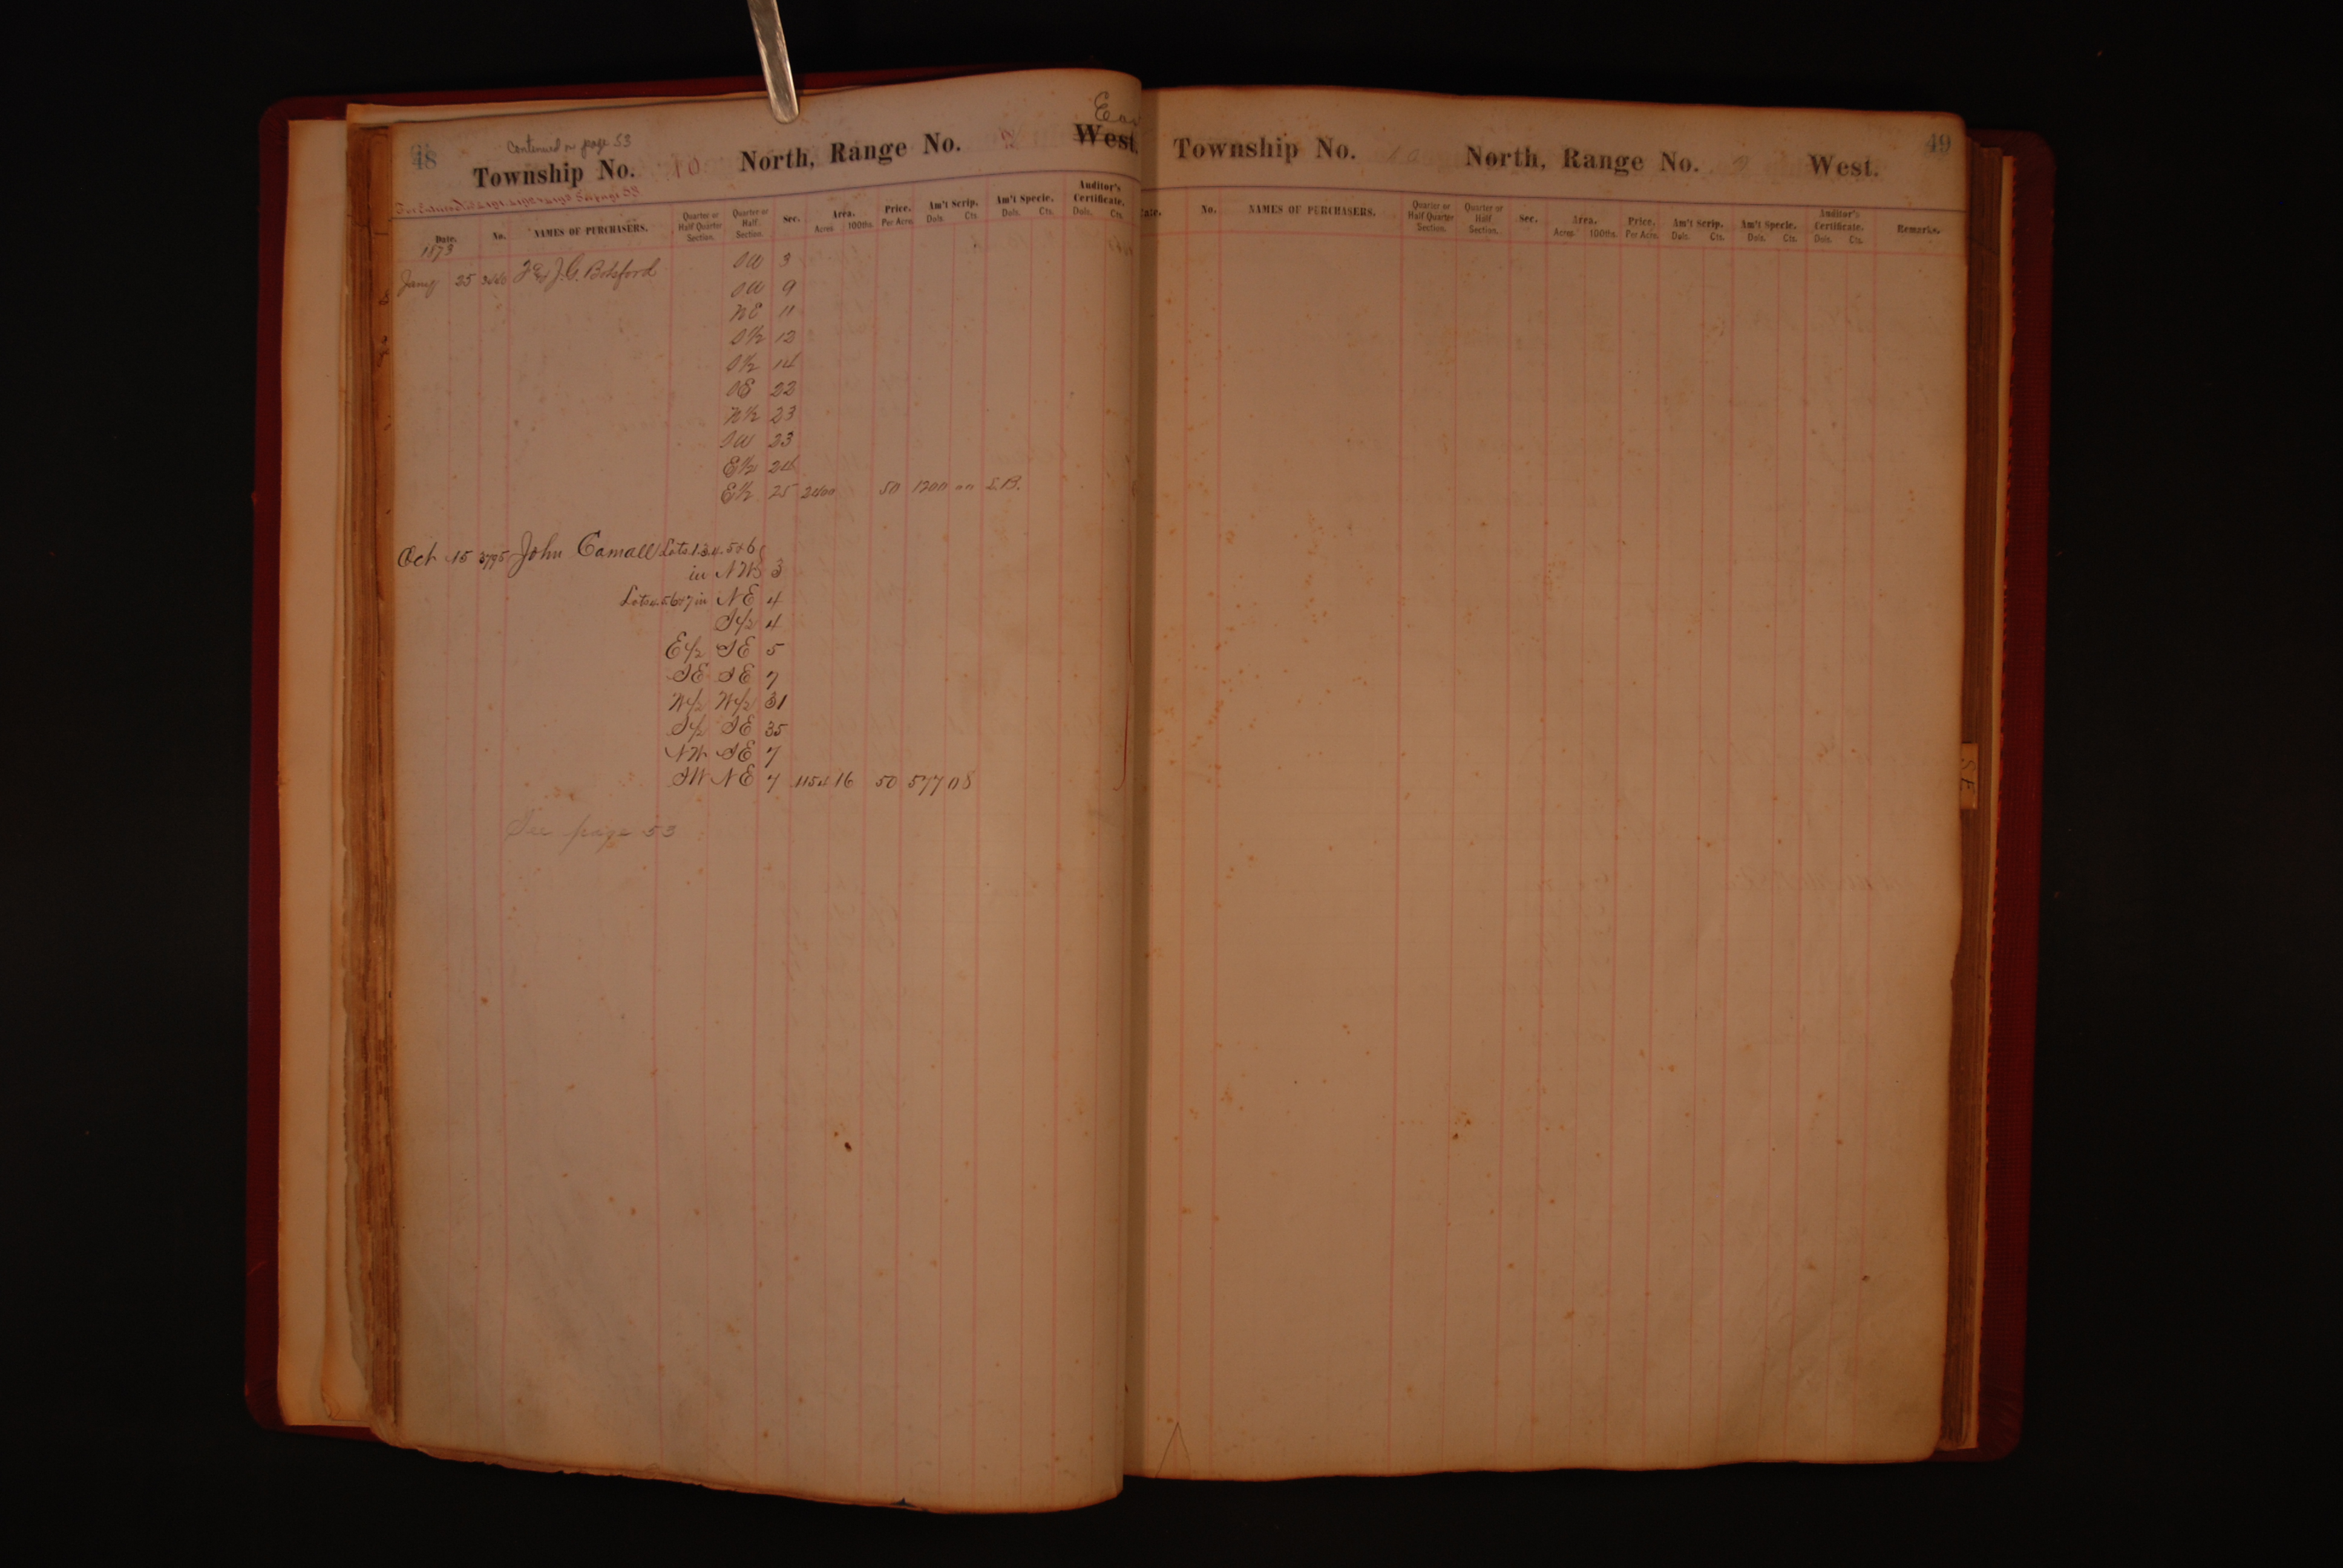 48
Continued on page 53
Township No. 10 North, Range No. 2 West.
See page 53
Date. No. NAMES OF PURCHASERS. Quarter or Half Quarter Section. Quarter or Half Section. Sec. Area. Acres 100ths. Price. Per Acre. Am't Scrip. Dols. Cts. Am't Specie. Dols. Cts. Auditor's Certificate. Dols. Cts.
1873
Jany 25 J. G. Botsford SW 3
SW 9
NE 11
S½ 12
S½ 14
SE 22
N½ 23
SW 23
E½ 24
E½ 25 2400 50 1200 00 S.B.
Oct 15 3795 John Camall Lots 1.3.4.5&6
in NW 3
Lots 4.5.6&7 in NE 4
S½ 4
E½ SE 5
SE SE 7
W½ W½ 31
S½ SE 35
NW SE 7
SW NE 7 1154 16 50 577 08
See page 53
49
Township No. 10 North, Range No. 2 West.
No. NAMES OF PURCHASERS. Quarter or Half Quarter Section. Quarter or Half Section. Sec. Area. Acres 100ths. Price. Per Acre. Am't Scrip. Dols. Cts. Am't Specie. Dols. Cts. Auditor's Certificate. Dols. Cts. Remarks.
S.E.